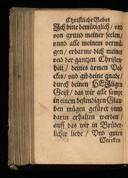 Christliche Gebet
Ich bitte demütiglich / und
von grund meiner seelen /
unnd alle meinem vermü-
gen / erbarme dich meiner
und der gantzen Christen-
heit / deines armen Vol-
cks / und gib deine gnade /
durch deinen HEiligen
Geist / das wir alle sampt
in einem bestendigen Glau-
ben mügen gefüret und
darin erhalten werden /
auff das wir in Brüder-
licher liebe / Und guten
Wercken